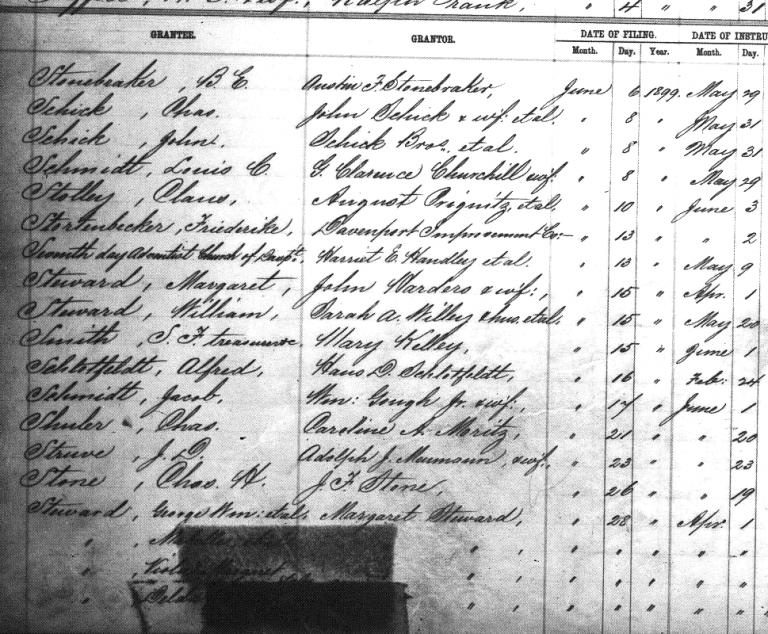 Ralfin Frank, " 4 " " 31
GRANTEE. GRANTOR. DATE OF FILING. DATE OF INSTRU
Month. Day. Year. Month. Day.
Stonebraker, B. E. Austin F. Stonebraker, June 6 1899. May 29
Schick, Chas. John Schick & wf. et al. " 8 " May 31
Schick, John. Schick Bros. et al. " 8 " May 31
Schmidt, Louis C. G. Clarence Churchill & wf. " 8 " May 29
Stolley, Claus, August Prignitz, et al. " 10 " June 3
Stortenbecker, Friederike, Davenport Improvement Co:- " 13 " " 2
Seventh day Adventist Church of Davpt. Harriet E. Handley et al. " 13 " May 9
Steward, Margaret, John Warders & wf:, " 15 " Apr. 1
Steward, William, Sarah A. Willey & hus. et al. " 15 " May 20
Smith, S. F. treasurer. Mary Kelley, " 15 " June 1
Schlotfeldt, Alfred, Hans D. Schlotfeldt, " 16 " Feb: 24
Schmidt, Jacob, Wm: Gough Jr. & wf:, " 17 " June 1
Shuler, Chas. Caroline A. Moritz, " 21 " " 20
Struve, J. D. Adolph J. Mumsum, & wf., " 23 " " 23
Stone, Chas. H. J. F. Stone, " 26 " " 19
Steward, George Wm: et al. Margaret Steward, " 28 " Apr. 1
" , " , " " " "
" , " , " " " "
" , " , " " " "